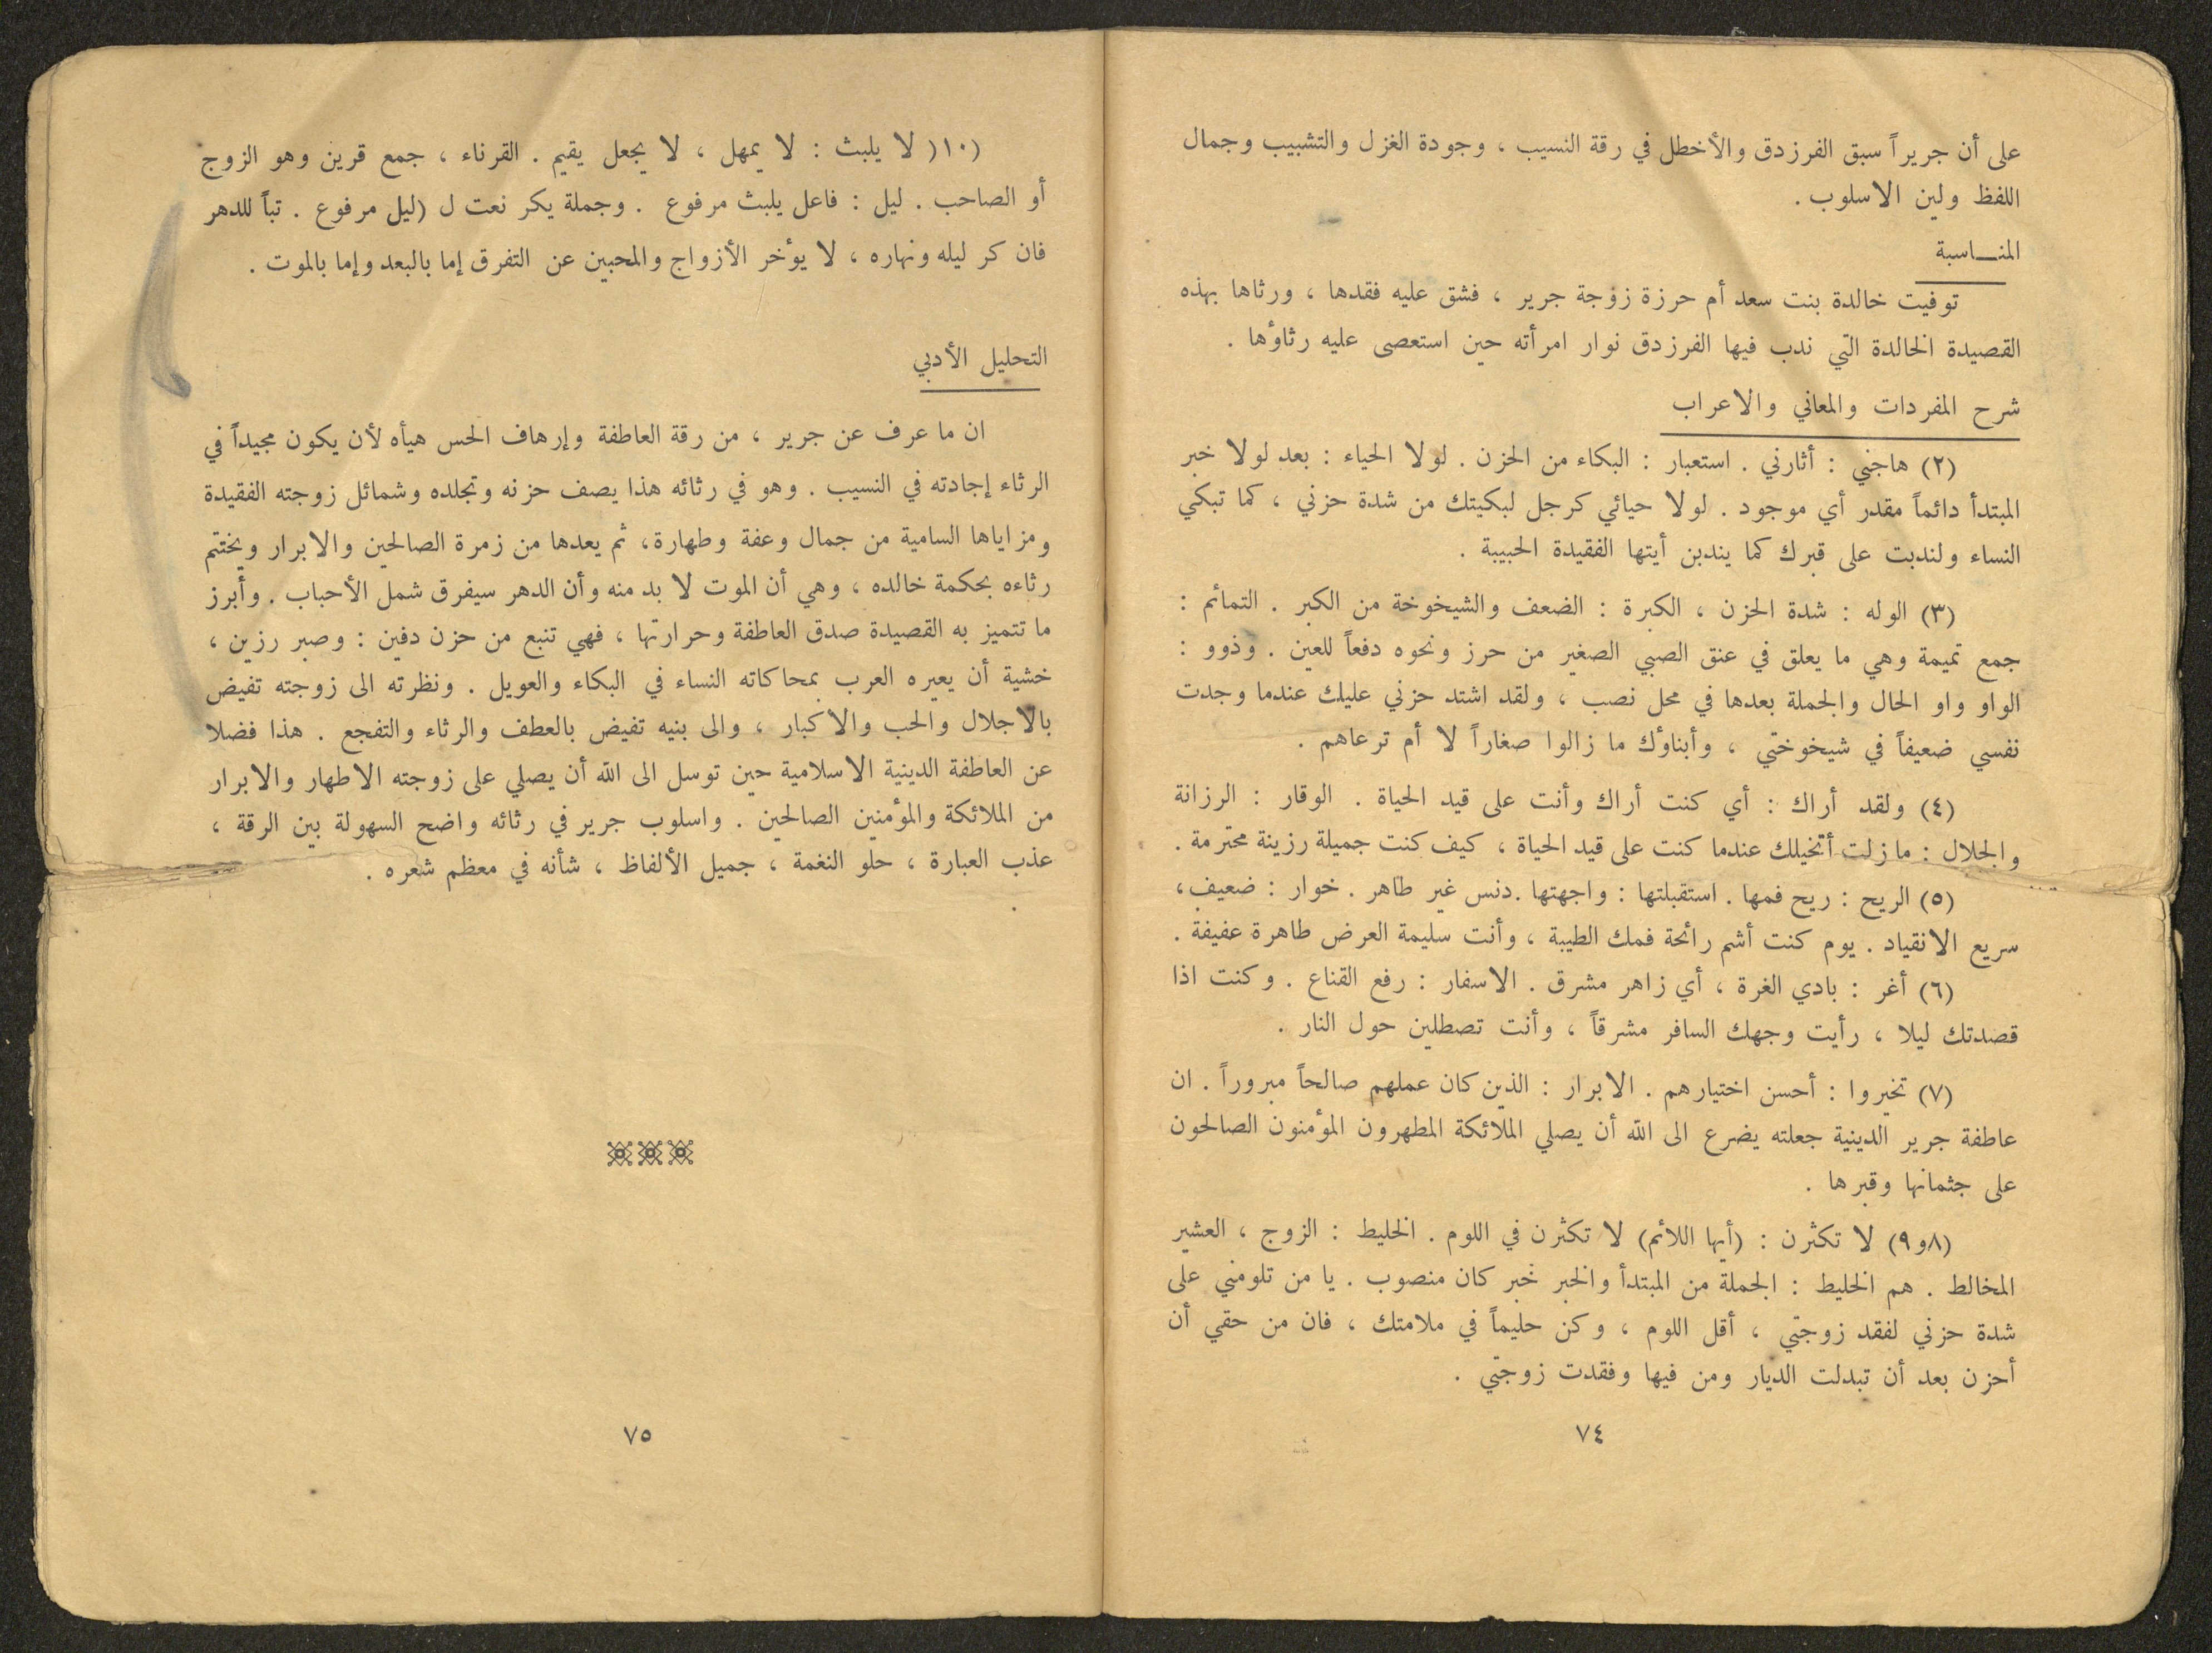 على أن جريراً سبق الفرزدق والأخطل في رقة النسيب ، وجودة الغزل والتشبيب وجمال
اللفظ ولين الاسلوب .
المنـــاسبة
توفيت خالدة بنت سعد أم حرزة زوجة جرير ، فشق عليه فقدها ، ورثاها بهذه
القصيدة الخالدة التي ندب فيها الفرزدق نوار امرأته حين استعصى عليه رثاؤها .
شرح المفردات والمعاني والاعراب
(٢) هاجني : أثارني . استعبار : البكاء من الحزن . لولا الحياء : بعد لولا خبر
المبتدأ دائماً مقدر أي موجود . لولا حيائي كرجل لبكيتك من شدة حزني ، كما تبكي
النساء ولندبت على قبرك كما يندبن أيتها الفقيدة الحبيبة .
(٣) الوله : شدة الحزن ، الكبرة : الضعف والشيخوخة من الكبر . التمائم :
جمع تميمة وهي ما يعلق في عنق الصبي الصغير من حرز ونحوه دفعاً للعين . وذوو :
الواو واو الحال والجملة بعدها في محل نصب ، ولقد اشتد حزني عليك عندما وجدت
نفسي ضعيفاً في شيخوختي ، وأبناؤك ما زالوا صغاراً لا أم ترعاهم .
(٤) ولقد أراك : أي كنت أراك وأنت على قيد الحياة . الوقار : الرزانة
والجلال : ما زلت أتخيلك عندما كنت على قيد الحياة ، كيف كنت جميلة رزينة محترمة .
(٥) الريح : ريح فمها . استقبلتها : واجهتها . دنس غير طاهر . خوار : ضعيف ،
سريع الانقياد . يوم كنت أشم رائحة فمك الطيبة ، وأنت سليمة العرض طاهرة عفيفة .
(٦) أغر : بادي الغرة ، أي زاهر مشرق . الاسفار : رفع القناع . وكنت اذا
قصدتك ليلا ، رأيت وجهك السافر مشرقاً ، وأنت تصطلين حول النار .
(٧) تخيروا : أحسن اختيارهم . الابرار : الذين كان عملهم صالحاً مبروراً . ان
عاطفة جرير الدينية جعلته يضرع الى الله أن يصلي الملائكة المطهرون المؤمنون الصالحون
على جثمانها وقبرها .
(٨و٩) لا تكثرن : (أيها اللائم) لا تكثرن في اللوم . الخليط : الزوج ، العشير
المخالط . هم الخليط : الجملة من المبتدأ والخبر خبر كان منصوب . يا من تلومني على
شدة حزني لفقد زوجتي ، أقل اللوم ، وكن حليماً في ملامتك ، فان من حقي أن
أحزن بعد أن تبدلت الديار ومن فيها وفقدت زوجتي .
٧٤
(١٠( لا يلبث : لا يمهل ، لا يجعل يقيم . القرناء ، جمع قرين وهو الزوج
أو الصاحب . ليل : فاعل يلبث مرفوع . وجملة يكر نعت ل (ليل مرفوع . تباً للدهر
فان كر ليله ونهاره ، لا يؤخر الأزواج والمحبين عن التفرق إما بالبعد وإما بالموت .
التحليل الأدبي
ان ما عرف عن جرير ، من رقة العاطفة وإرهاف الحس هيأه لأن يكون مجيداً في
الرثاء إجادته في النسيب . وهو في رثائه هذا يصف حزنه وتجلده وشمائل زوجته الفقيدة
ومزاياها السامية من جمال وعفة وطهارة ، ثم يعدها من زمرة الصالحين والابرار ويختتم
رثاءه بحكمة خالده ، وهي أن الموت لا بد منه وأن الدهر سيفرق شمل الأحباب . وأبرز
ما تتميز به القصيدة صدق العاطفة وحرارتها ، فهي تنبع من حزن دفين : وصبر رزين ،
خشية أن يعيره العرب بمحاكاته النساء في البكاء والعويل . ونظرته الى زوجته تفيض
بالاجلال والحب والاكبار ، والى بنيه تفيض بالعطف والرثاء والتفجع . هذا فضلا
عن العاطفة الدينية الاسلامية حين توسل الى الله أن يصلي على زوجته الاطهار والابرار
من الملائكة والمؤمنين الصالحين . واسلوب جرير في رثائه واضح السهولة بين الرقة ،
عذب العبارة ، حلو النغمة ، جميل الألفاظ ، شأنه في معظم شعره .
٧٥